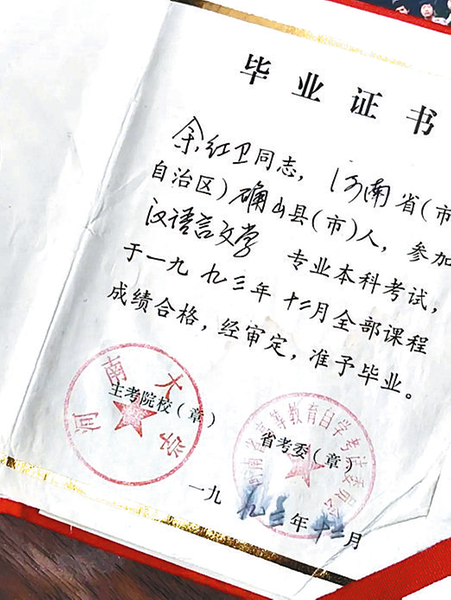 毕业证书
余红卫同志，河南省（市
自治区）确山县（市）人，参加
汉语言文学 专业本科考试，
于一九九三年十二月全部课程
成绩合格，经审定，准予毕业。
河南大学
主考院校（章）
河南省高等教育自学考试委员会
省考委（章）
一九九三年十二月